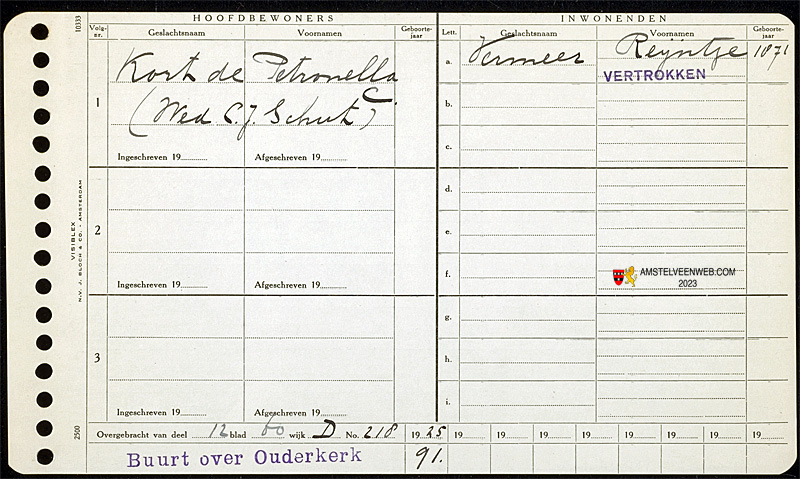 10333
HOOFDBEWONERS
INWONENDEN
Volg-nr. Geslachtsnaam Voornamen Geboorte-jaar
Lett. Geslachtsnaam Voornamen Geboorte-jaar
1
Kort de Petronella C.
(Wed C.J. Schut)
Ingeschreven 19 Afgeschreven 19
a. Vermeer Reijntje 1871
VERTROKKEN
b.
c.
2
Ingeschreven 19 Afgeschreven 19
d.
e.
f.
AMSTELVEENWEB.COM
2023
3
Ingeschreven 19 Afgeschreven 19
g.
h.
i.
VISIBLEX
N.V. J. BLOCH & CO. - AMSTERDAM
2500
Overgebracht van deel 12 blad 60 wijk D No. 218 1925 19 19 19 19 19 19 19 19
Buurt over Ouderkerk 91.